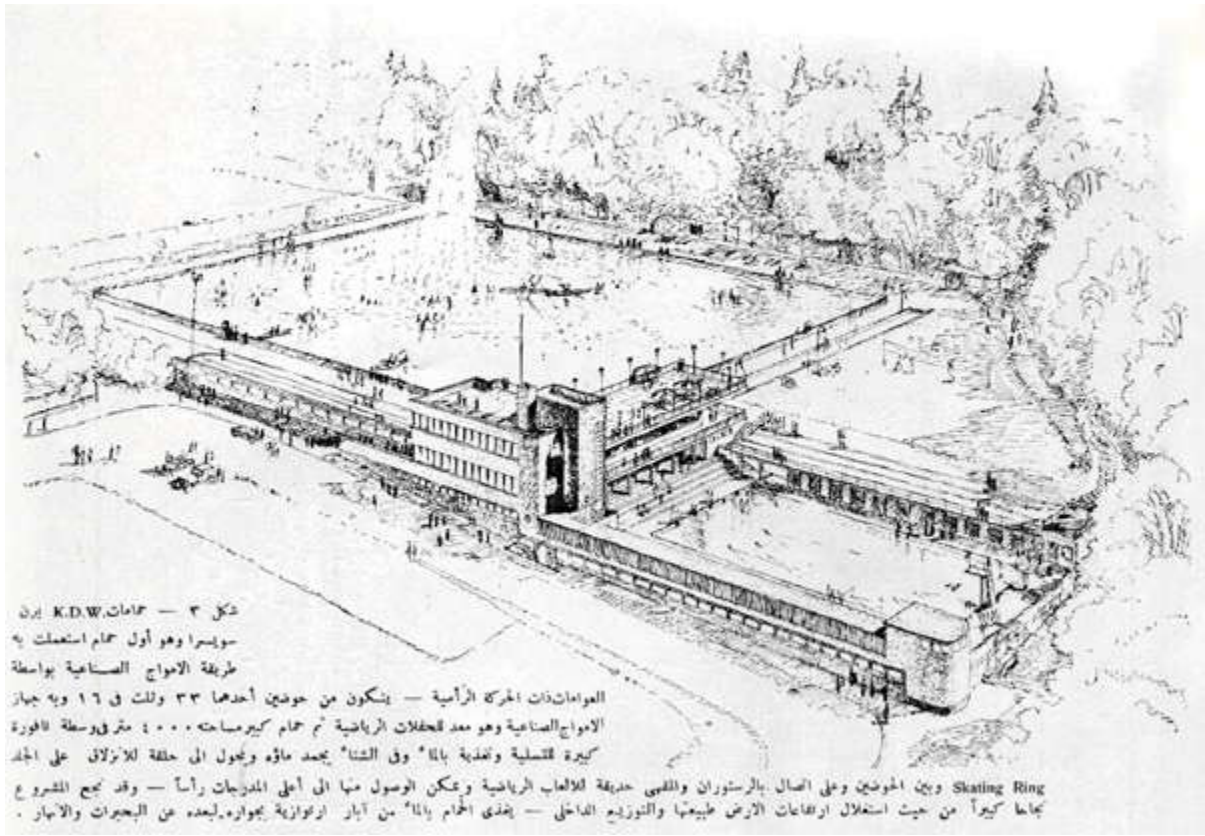 شكل ٣ — حمامات K.D.W. برن
سويسرا وهو أول حمام استعملت به
طريقة الامواج الصناعية بواسطة
العوامات ذات الحركة الرأسية — يتكون من حوضين أحدهما ٣٣ وثلث فى ١٦ وبه جهاز
الامواج الصناعية وهو معد للحفلات الرياضية ثم حمام كبير مساحته ٤٠٠٠ متر فى وسطة نافورة
كبيرة للتسلية وتغذية بالماء وفى الشتاء يجمد ماؤه ويحول الى حلقة للانزلاق على الجلد
Skating Ring وبين الحوضين وعلى اتصال بالرستوران والمقهى حديقة للالعاب الرياضية ويمكن الوصول منها الى أعلى المدرجات رأساً — وقد نجح المشروع
نجاحا كبيراً من حيث استغلال ارتفاعات الارض طبيعتها والتوزيع الداخلى — يغذى الحمام بالماء من آبار ارتوازية بجواره لبعده عن البحيرات والانهار .